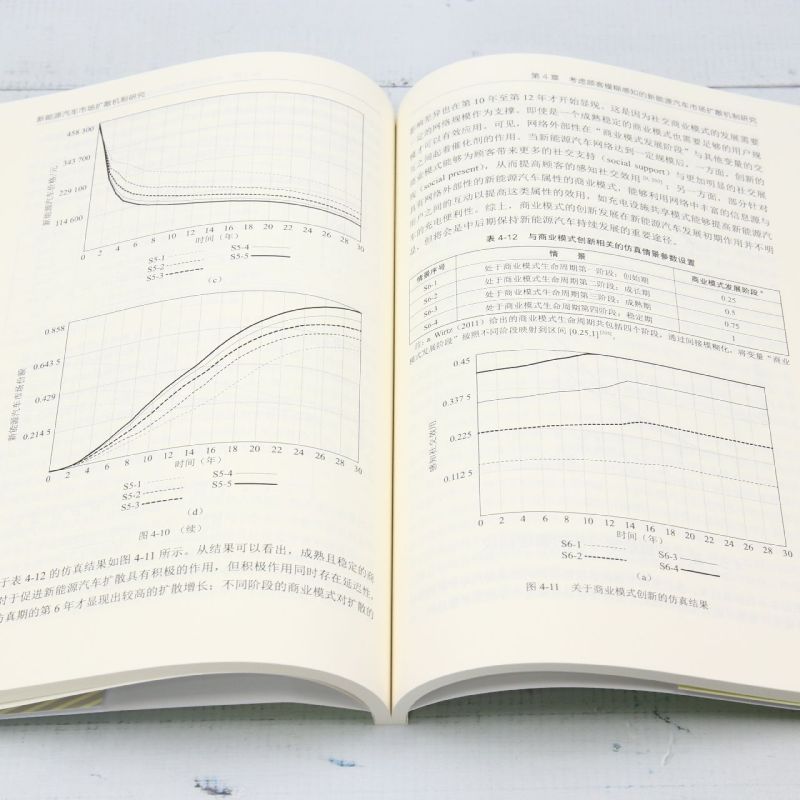 新能源汽车市场扩散机制研究
458 300
343 700
229 100
114 600
新能源汽车价格/元
0 2 4 6 8 10 12 14 16 18 20 22 24 26 28 30
时间（年）
S5-1 S5-4
S5-2 S5-5
S5-3
（c）
0.858
0.643 5
0.429
0.214 5
新能源汽车市场份额
0 2 4 6 8 10 12 14 16 18 20 22 24 26 28 30
时间（年）
S5-1 S5-4
S5-2 S5-5
S5-3
（d）
图 4-10 （续）
于表 4-12 的仿真结果如图 4-11 所示。从结果可以看出，成熟且稳定的商
对于促进新能源汽车扩散具有积极的作用，但积极作用同时存在延迟性，
仿真期的第 6 年才显现出较高的扩散增长；不同阶段的商业模式对扩散的
第 4 章 考虑顾客模糊感知的新能源汽车市场扩散机制研究
影响差异也在第 10 年至第 12 年才开始显现。这是因为社交商业模式的发展需要
一定的网络规模作为支撑。即使是一个成熟稳定的商业模式也需要足够的用户规
模才可以有效应用。可见，网络外部性在“商业模式发展阶段”与其他变量的交
互之间起着催化剂的作用。当新能源汽车网络达到一定规模后，一方面，创新的
商业模式能够为顾客带来更多的社交支持（social support）与更加明显的社交展
现（social present），从而提高顾客的感知社交效用；另一方面，部分针对
具有网络外部性的新能源汽车属性的商业模式，能够利用网络中丰富的信息源与
用户之间的互动以提高这类属性的效用，如充电设施共享模式能够提高新能源汽
车的充电便利性。综上，商业模式的创新发展在新能源汽车发展初期作用并不明
显，但将会是中后期保持新能源汽车持续发展的重要途径。
表 4-12 与商业模式创新相关的仿真情景参数设置
情景序号 情 景 商业模式发展阶段a
S6-1 处于商业模式生命周期第一阶段：创始期 0.25
S6-2 处于商业模式生命周期第二阶段：成长期 0.5
S6-3 处于商业模式生命周期第三阶段：成熟期 0.75
S6-4 处于商业模式生命周期第四阶段：稳定期 1
注：a. Wirtz（2011）给出的商业模式生命周期共包括四个阶段，通过间接模糊化，将变量“商业
模式发展阶段”按照不同阶段映射到区间 [0.25,1]
0.45
0.337 5
0.225
0.112 5
感知社交效用
0 2 4 6 8 10 12 14 16 18 20 22 24 26 28 30
时间（年）
S6-1 S6-3
S6-2 S6-4
（a）
图 4-11 关于商业模式创新的仿真结果